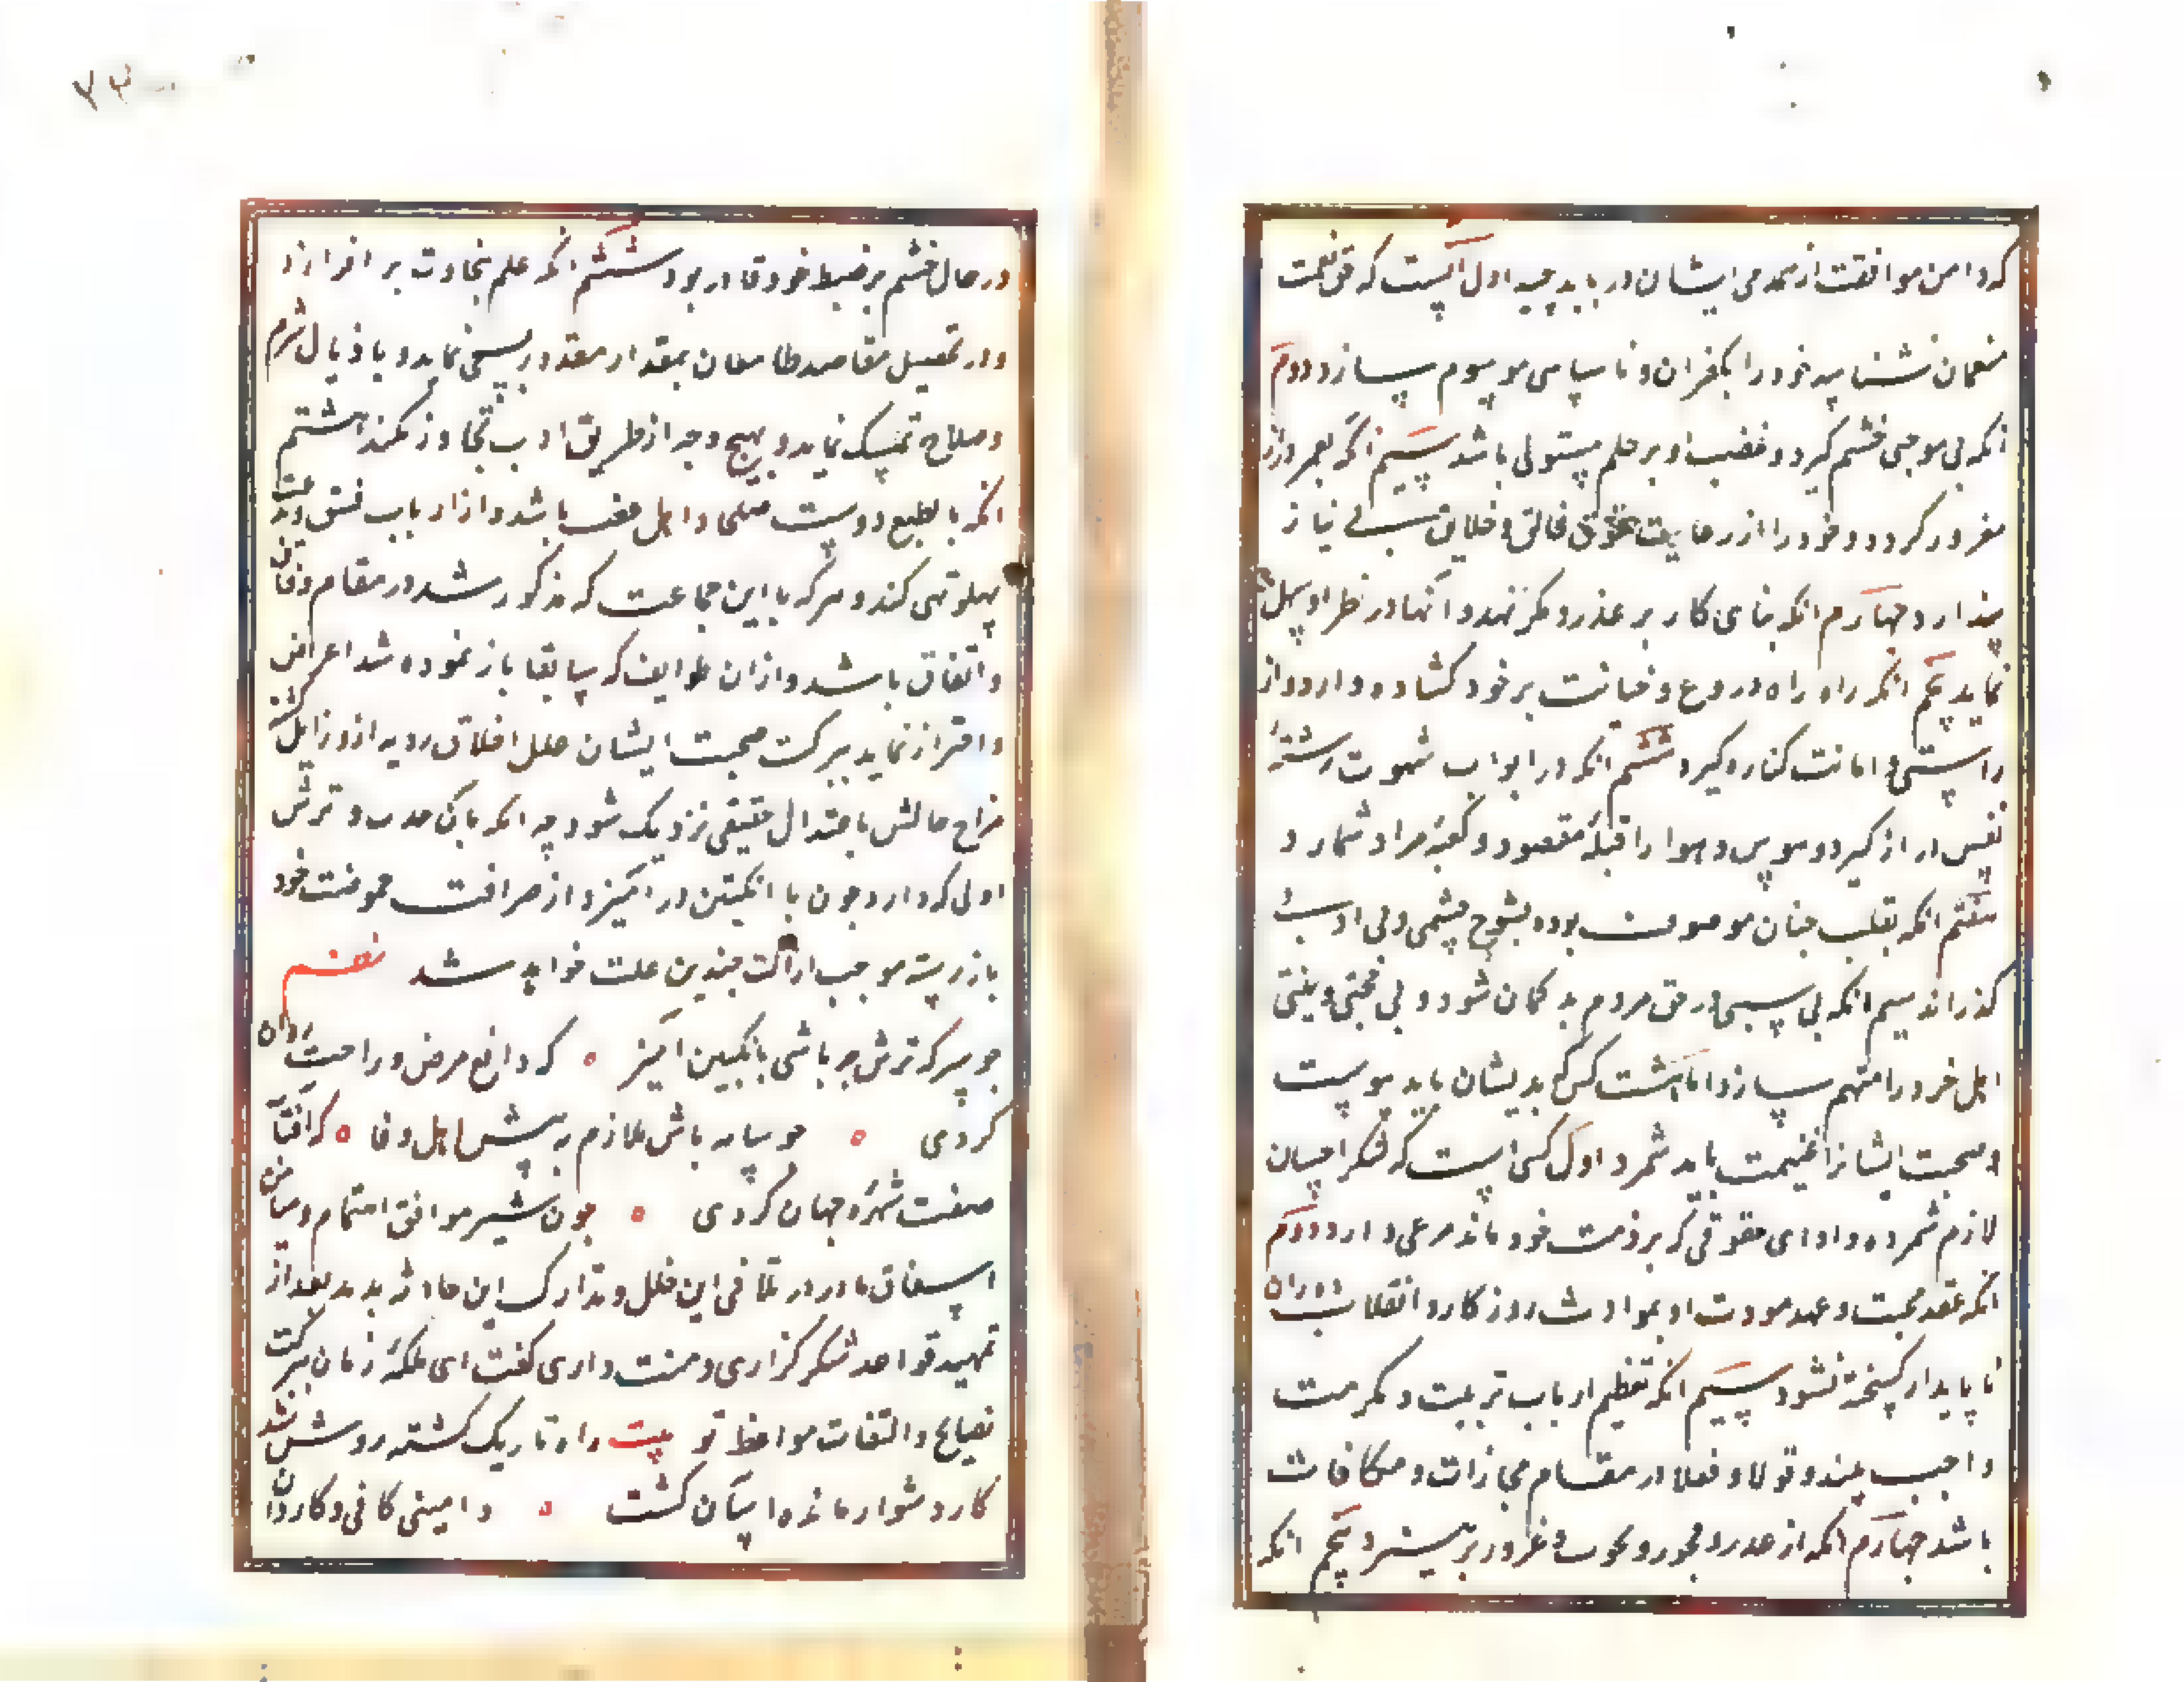 که دامن موافقت از همدمی ایشان در باید چید اول آنست که حق نعمت
منعمان نشناسد خود را بکفران و ناسپاسی موسوم سازد دوم
انکه بی موجبی خشم گیرد و غضب او بر حلم مستولی باشد سیم انکه بعمر دراز
مغرور گردد و خود را از رعایت حقوق خالق و خلایق بی نیاز
پندارد چهارم انکه بنای کار بر غدر و مکر نهد و آنها در نظر او سهل
نماید پنجم انکه راه دروع و خیانت بر خود گشاده دارد و از
راستی و امانت کناره گیرد ششم انکه در ابواب شهوت رشتهٔ
نفس دراز گیرد و هوس و هوا را قبلهٔ مقصود و کعبهٔ مراد شمارد
هفتم انکه بقلب جنان موصوف بوده بشوخ چشمی و بی ادبی
گذراند هشتم انکه بی سببی در حق مردم بد گمان شود و بی حجتی و بینتی
اهل خرد را متهم سازد اما هشت کس که بدیشان باید پیوست
و صحبت ایشانرا غنیمت باید شمرد اول کسی است که شکر احسان
لازم شمرده و ادای حقوقی که بر ذمت خود ماند مرعی دارد دوم
انکه عقد محبت و عهد مودت او بحوادث روزکار و انقلاب دوران
ناپایدار گسیخته نشود سیم انکه تعظیم ارباب تربیت و مکرمت
واجب بیند و قولا و فعلا در مقام مجازات و مکافات
باشد چهارم انکه از غدر و فجور و عجب و غرور بپرهیزد پنجم انکه
در حال خشم بر ضبط خود قادر بود ششم انکه علم سخاوت بر افرازد
و در تحصیل مقاصد طامعان بمقدار مقدور سعی نماید و باذیال شرم
و صلاح تمسک نماید و بهیچ وجه از طریق ادب تجاوز نکند هشتم
انکه بالطبع دوست صلحا و اهل عفت باشد و از ارباب فسق و
پهلو تهی کند و هرکه با این جماعت که مذکور شد در مقام وفاق
و اتفاق باشد و از ان طوایف که سابقا باز نموده شد اعراض
و احتراز نماید ببرکت صحبت ایشان علل اخلاق ردیه ازو زایل گشته
مزاج حالش باعتدال حقیقی نزدیک شود چه انکه بان حدت و ترشی
اولی که دارد چون با انگبین در آمیزد از صرافت حموضت خود
باز رسته موجب ازالت چندین علت خواهد شد نظم
چو سرکه ترش چه باشی بانگبین آمیز که دافع مرض و راحت روان
گردی چو سایه باش ملازم به پیش اهل وفا که آفتاب
صفت شهرهٔ جهان گردی چون شیر موافق اهتمام و میامن
اشفاق مادر در تلافی این خلل و تدارک این حادثه بدید بعد از
تمهید قواعد شکر گزاری و منت داری گفت ای ملکهٔ زمان ببرکت
نصایح و التفات مواعظ تو بیت راه تاریک گشته روشن شد
کار دشوار مانده آسان گشت و امینی کافی و کاردان